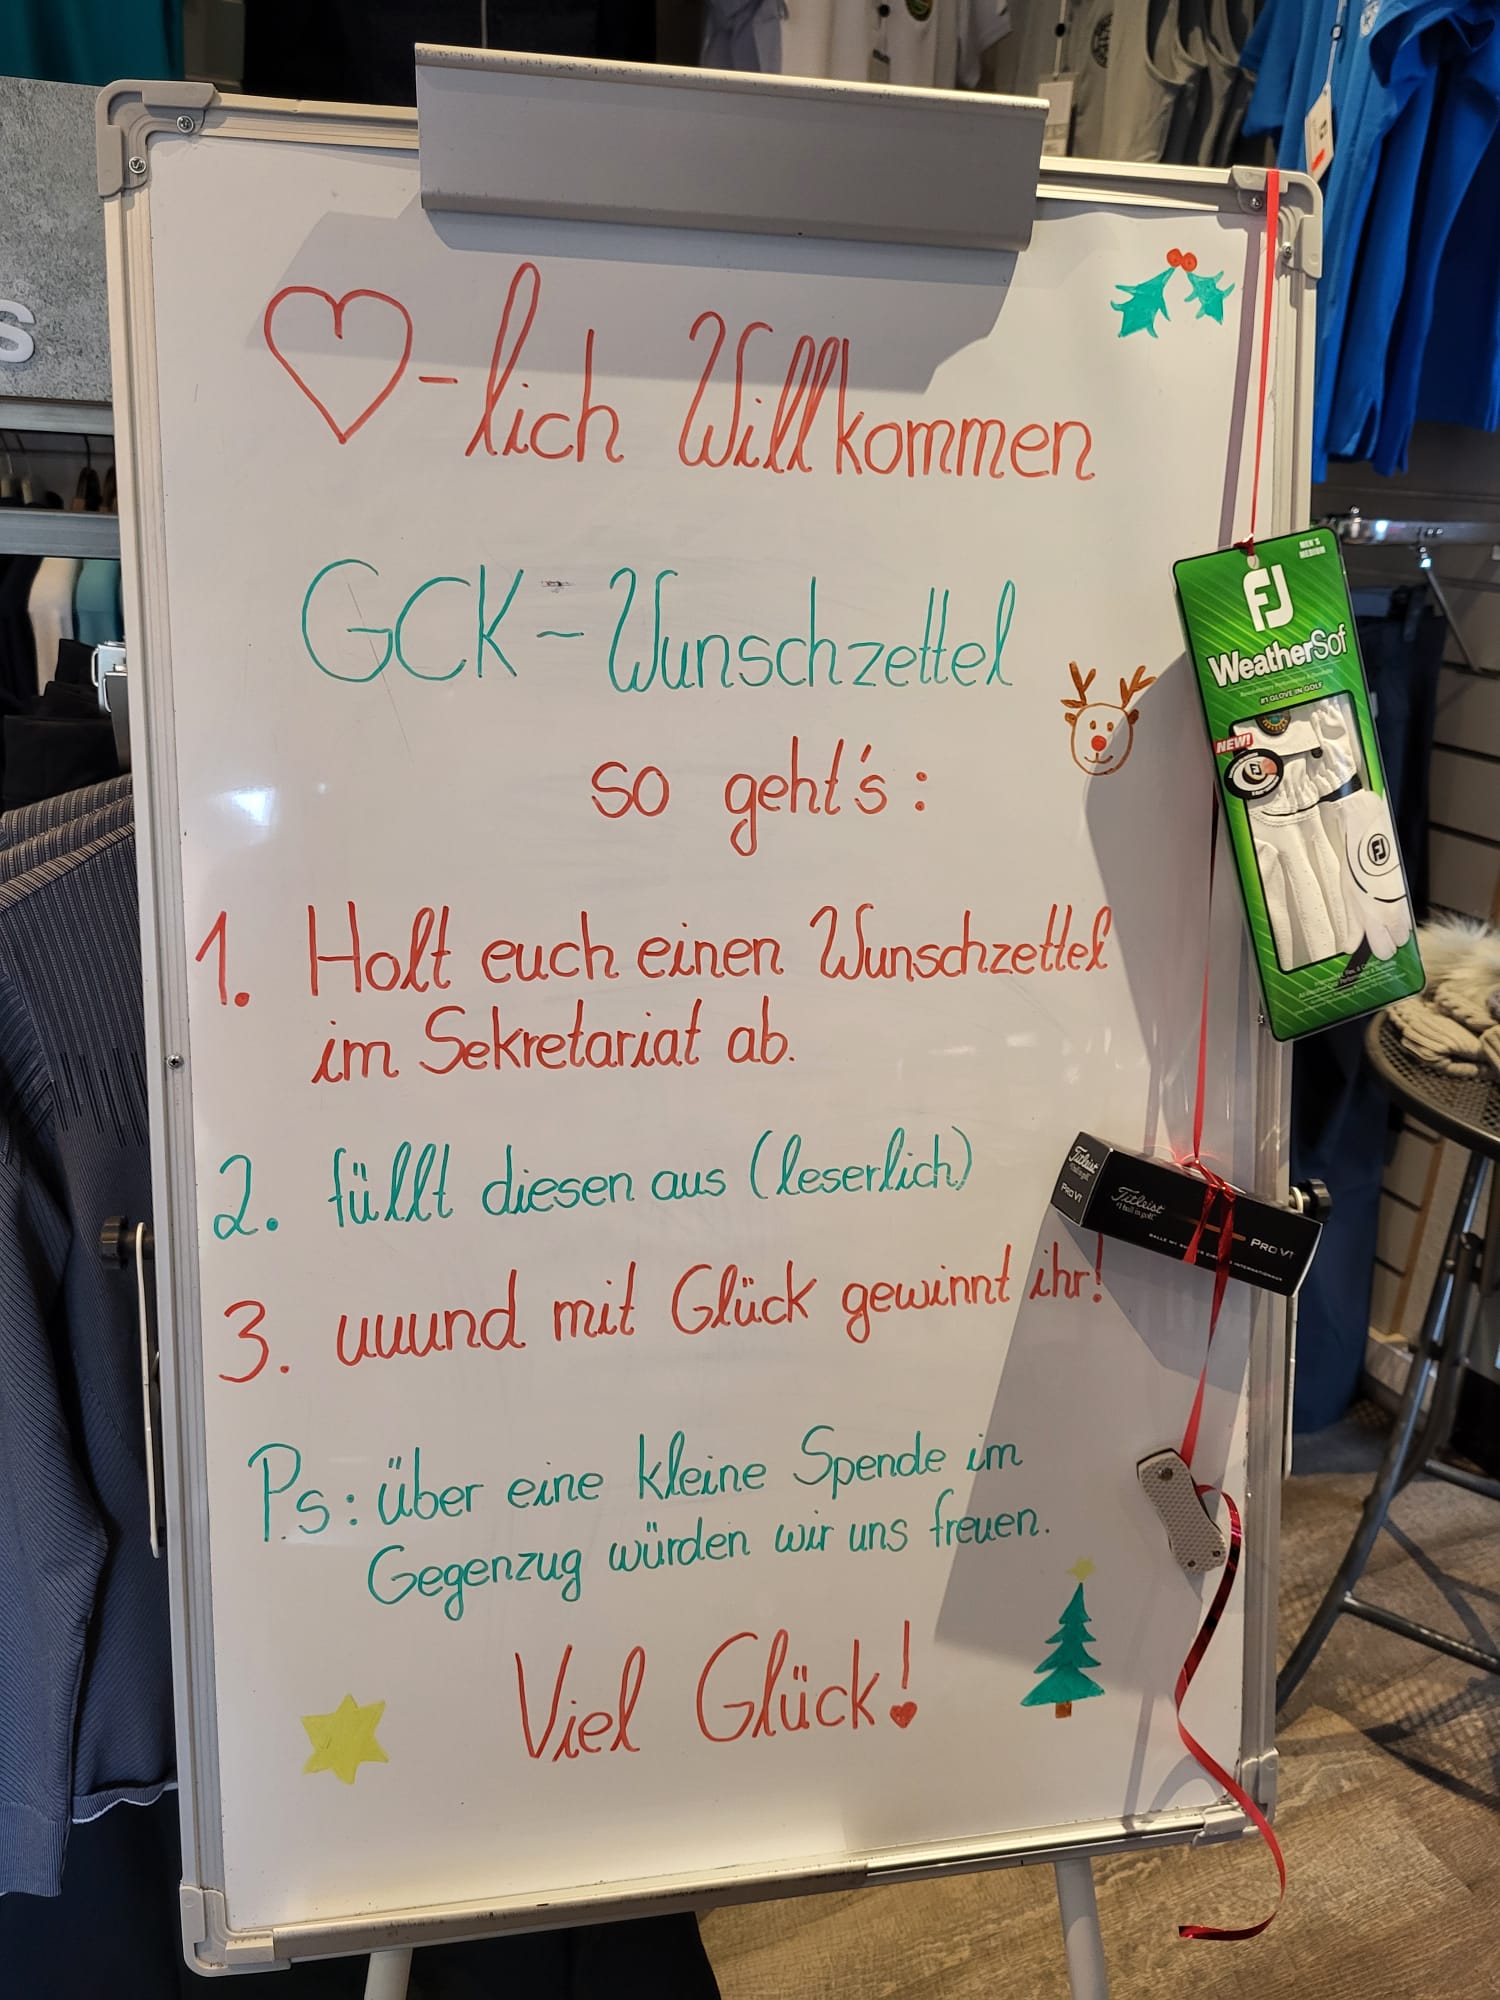 s
♡-lich Willkommen
GCK-Wunschzettel
so geht's:
1. Holt euch einen Wunschzettel
im Sekretariat ab.
2. füllt diesen aus (leserlich)
3. uuund mit Glück gewinnt ihr!
Ps: über eine kleine Spende im
Gegenzug würden wir uns freuen.
Viel Glück!
MEN'S
MEDIUM
FJ
WeatherSof
#1 GLOVE IN GOLF
NEW!
FJ
FJ
Titleist
PRO V1
Titleist
#1 ball in golf
PRO V1